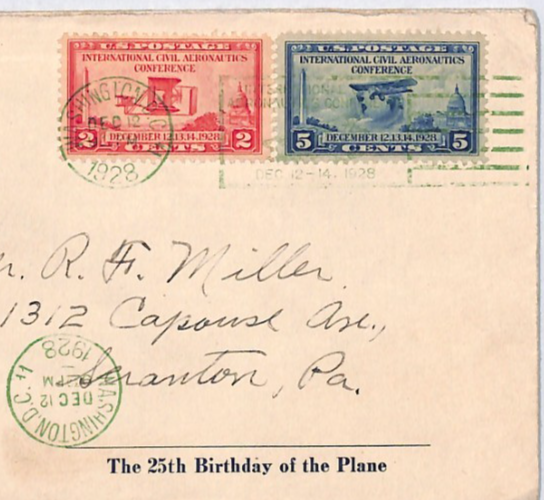 U.S. POSTAGE
INTERNATIONAL CIVIL AERONAUTICS
CONFERENCE
2 DECEMBER 12.13.14.1928 2
CENTS
U.S. POSTAGE
INTERNATIONAL CIVIL AERONAUTICS
CONFERENCE
5 DECEMBER 12.13.14.1928 5
CENTS
WASHINGTON, D.C.
DEC 12
1928
INTERNATIONAL
AERONAUTICS CONF
DEC 12-14, 1928
Mr. R. F. Miller
1312 Capouse Ave.,
Scranton, Pa.
WASHINGTON, D.C. 11
DEC 12
PM
1928
The 25th Birthday of the Plane